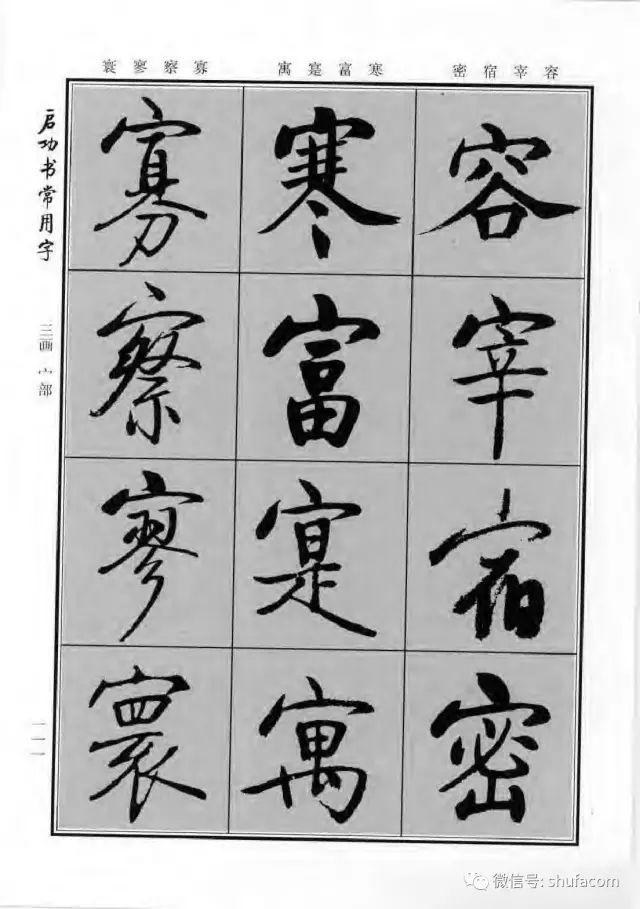 容宰宿密 寒富寔寓 寡察寥寰
容宰宿密
寒富寔寓
寡察寥寰
启功书常用字
三画 宀部
一一一
微信号: shufacom